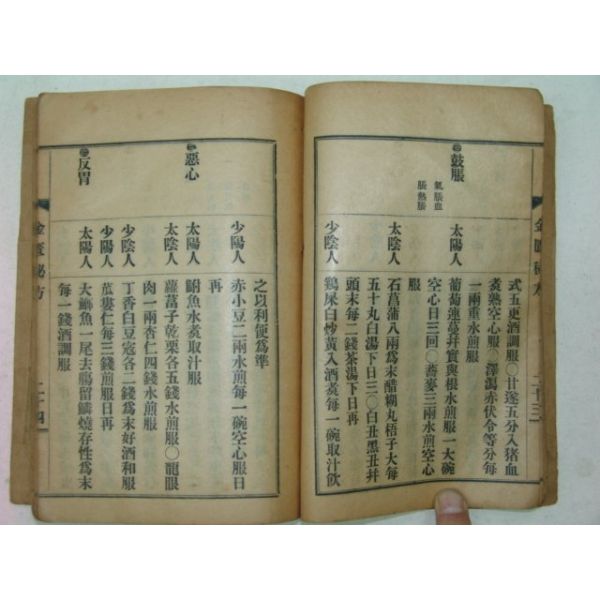 金匱秘方 二十三
式五更酒調服〇甘遂五分入猪血
煑熟空心服〇澤瀉赤伏令等分每
一兩重水煎服
鼓脹 氣脹血
脹熱脹
太陽人 葡萄連蔓幷實與根水煎服一大碗
空心日三回〇蕎麥三兩水煎空心
服
太陰人 石菖蒲八兩爲末醋糊丸梧子大每
五十丸白湯下日三〇白丑黑丑幷
頭末每二錢茶湯下日再
少陰人 鷄屎白炒黃入酒煑每一碗取汁飮
之以利便爲準
少陽人 赤小豆二兩水煎每一碗空心服日
再
惡心 太陽人 鮒魚水煑取汁服
太陰人 蘿葍子乾栗各五錢水煎服〇龍眼
肉一兩杏仁四錢水煎服
少陰人 丁香白豆寇各二錢爲末好酒和服
少陽人 苽蔞仁每三錢煎服日再
反胃 太陽人 大鯽魚一尾去膓留鱗燒存性爲末
每一錢酒調服
金匱秘方 二十四